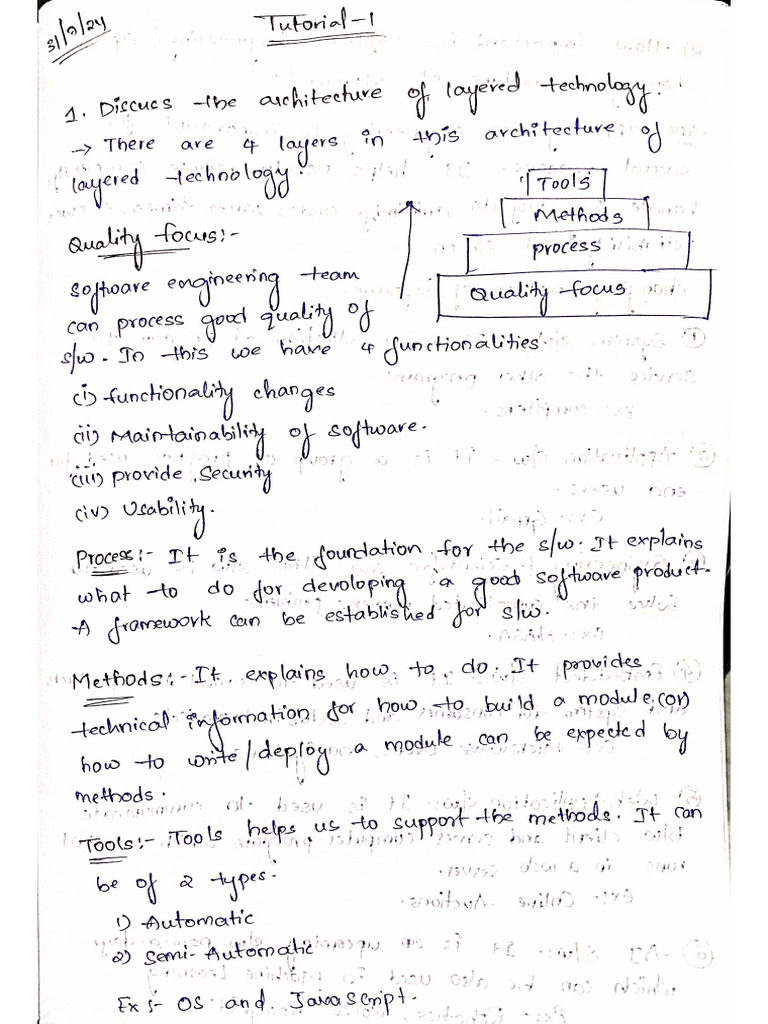 31/7/24
Tutorial-1
1. Discucs the architecture of layered technology.
→ There are 4 layers in this architecture of
layered technology.
Tools
Methods
process
Quality focus
Quality focus:-
software engineering team
can process good quality of
s/w. In this we have 4 functionalities
(i) functionality changes
(ii) Maintainability of software.
(iii) provide security
(iv) Usability.
Process:- It is the foundation for the s/w. It explains
what to do for devoloping a good software product.
A framework can be established for s/w.
Methods:- It explains how to do. It provides
technical information for how to build a module (or)
how to write/deploy a module can be expected by
methods.
Tools:- Tools helps us to support the methods. It can
be of 2 types.
1) Automatic
2) Semi-Automatic
Ex:- OS and Javascript.